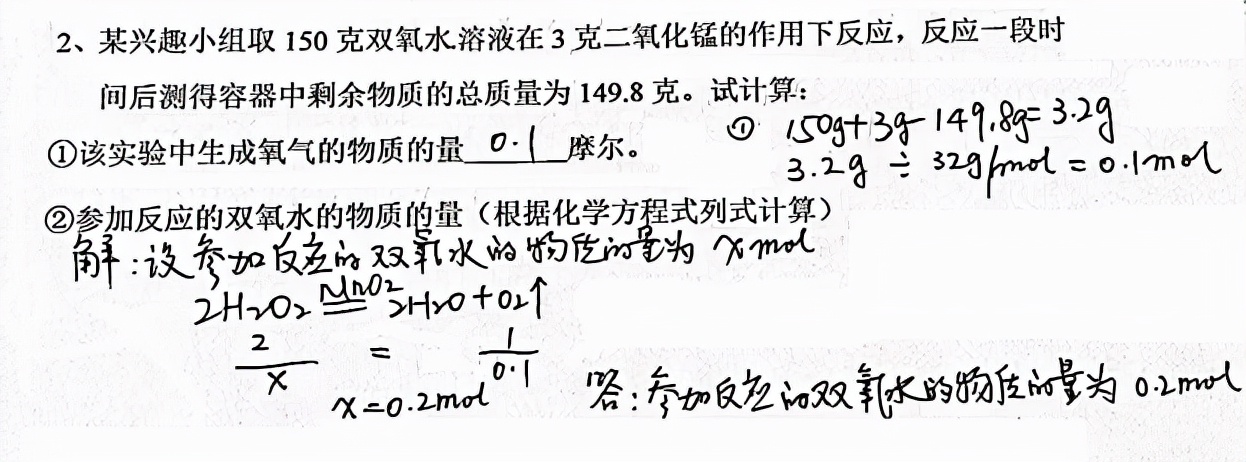 2、某兴趣小组取 150 克双氧水溶液在 3 克二氧化锰的作用下反应，反应一段时
间后测得容器中剩余物质的总质量为 149.8 克。试计算：
① 150g+3g-149.8g=3.2g
①该实验中生成氧气的物质的量 0.1 摩尔。
3.2g ÷ 32g/mol = 0.1mol
②参加反应的双氧水的物质的量（根据化学方程式列式计算）
解：设参加反应的双氧水的物质的量为 x mol
2H₂O₂ MnO₂══ 2H₂O+O₂↑
2/x = 1/0.1
x=0.2mol
答：参加反应的双氧水的物质的量为 0.2mol